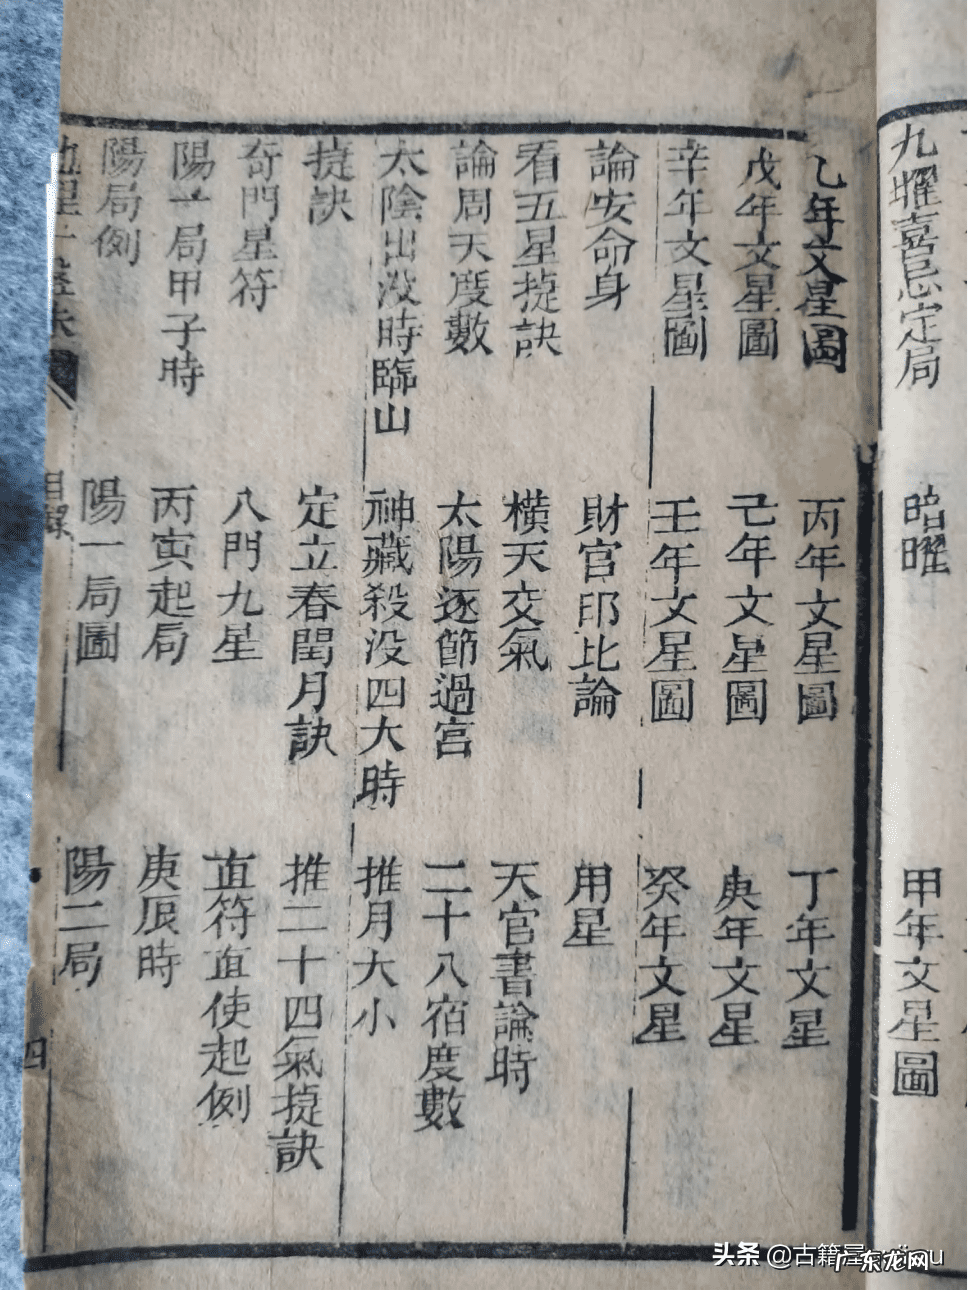 九曜喜忌定局 暗曜 甲年文星圖
乙年文星圖 丙年文星圖 丁年文星
戊年文星圖 己年文星圖 庚年文星
辛年文星圖 壬年文星圖 癸年文星
論安命身 財官印比論 用星
看五星捷訣 橫天交氣 天官書論時
論周天度數 太陽逐節過宮 二十八宿度數
太陰出没時臨山 神藏殺没四大時 推月大小
捷訣 定立春閏月訣 推二十四氣捷訣
奇門星符 八門九星 直符直使起例
陽一局甲子時 丙寅起局 庚辰時
陽局例 陽一局圖 陽二局
目錄 四
头条 @古籍屋
广东龙网